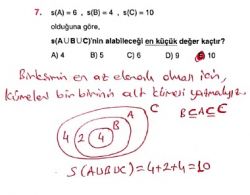 7. s(A) = 6 , s(B) = 4 , s(C) = 10
olduğuna göre,
s(A∪B∪C)'nin alabileceği en küçük değer kaçtır?
A) 4 B) 5 C) 6 D) 9 E) 10
Birleşimin en az elemanlı olması için,
kümeleri birbirinin alt kümesi yatmalıyız.
C
A
B
4 2 4
B⊆A⊆C
s(A∪B∪C) = 4+2+4=10